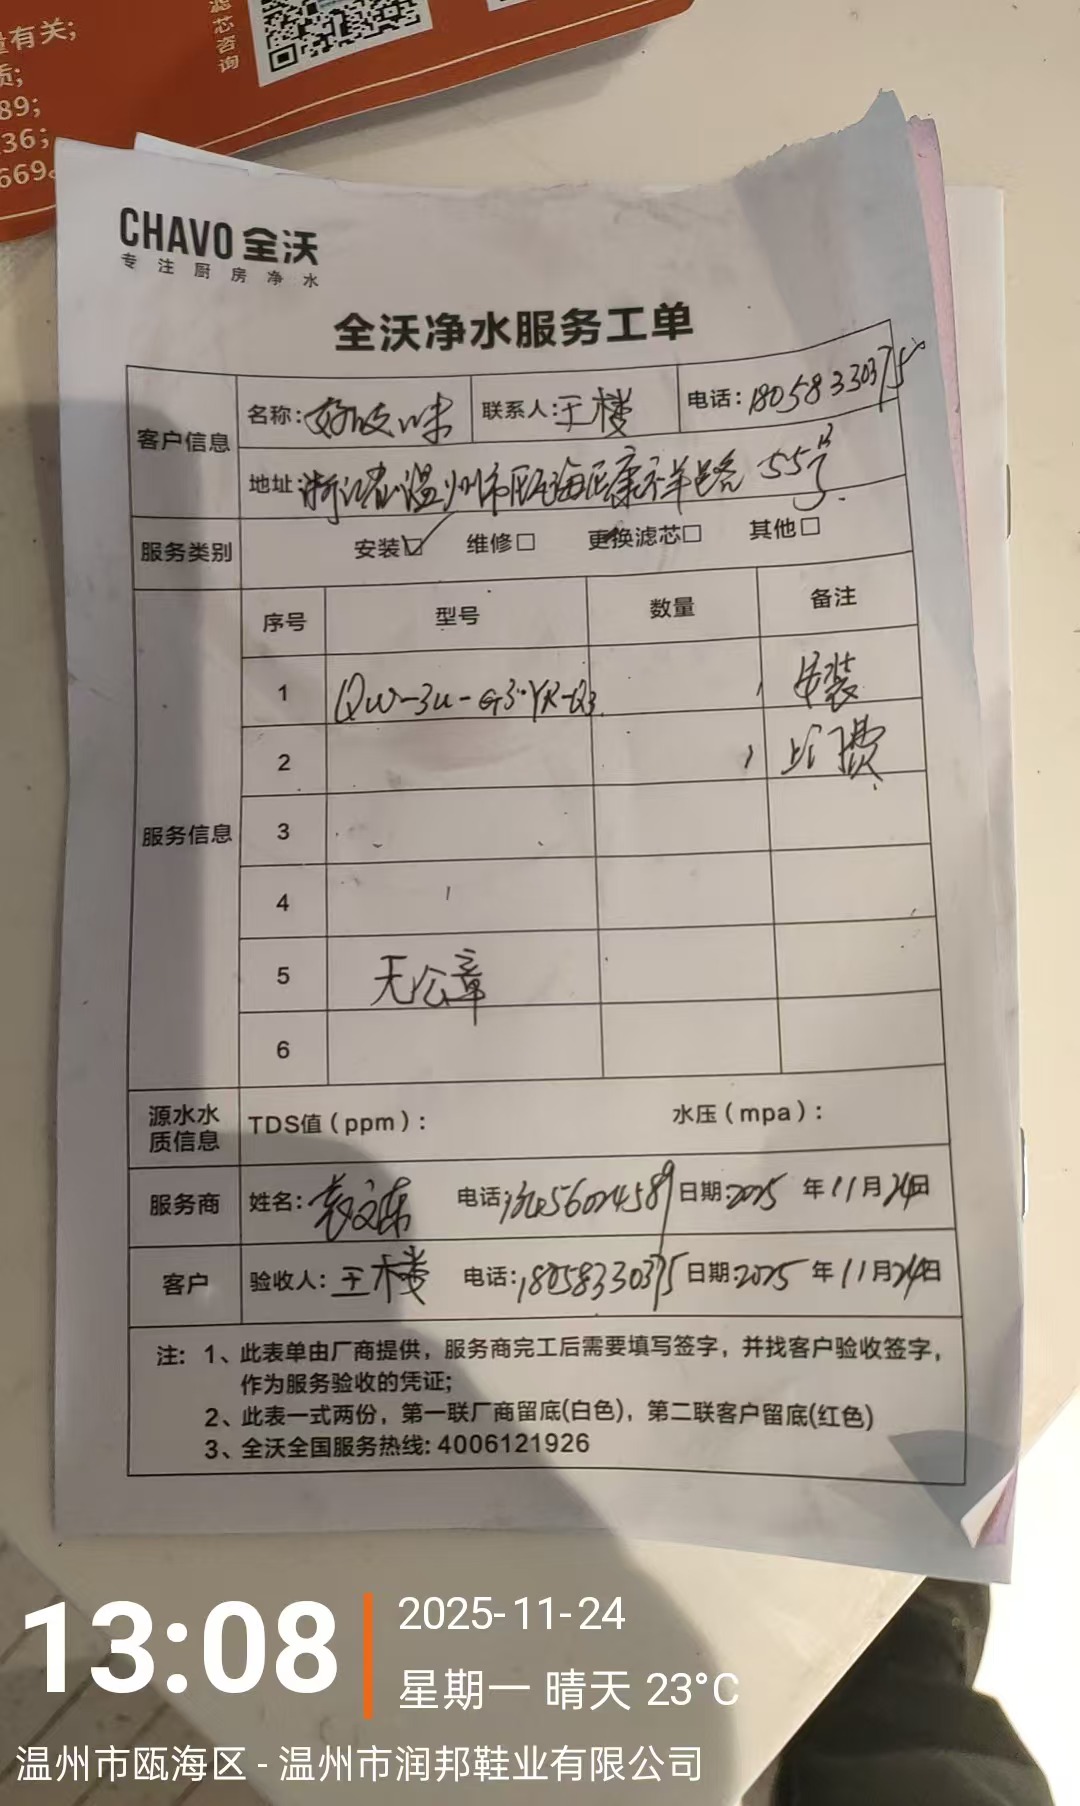 量有关;
质;
89;
36;
669。
滤芯咨询
CHAVO 全沃
专注厨房净水
全沃净水服务工单
客户信息 名称: 联系人:王楼 电话:18058330375
地址:浙江省温州市瓯海区康祥路55号
服务类别 安装☑ 维修□ 更换滤芯□ 其他□
服务信息 序号 型号 数量 备注
1 QW-3U-G3-YR-Q3 1 安装
2 1 上门费
3
4
5 无公章
6
源水水质信息 TDS值(ppm): 水压(mpa):
服务商 姓名:袁文东 电话: 日期:2025年11月24日
客户 验收人:王楼 电话:18058330375 日期:2025年11月24日
注: 1、此表单由厂商提供,服务商完工后需要填写签字,并找客户验收签字,
作为服务验收的凭证;
2、此表一式两份,第一联厂商留底(白色),第二联客户留底(红色)
3、全沃全国服务热线: 4006121926
13:08
2025-11-24
星期一 晴天 23°C
温州市瓯海区 - 温州市润邦鞋业有限公司